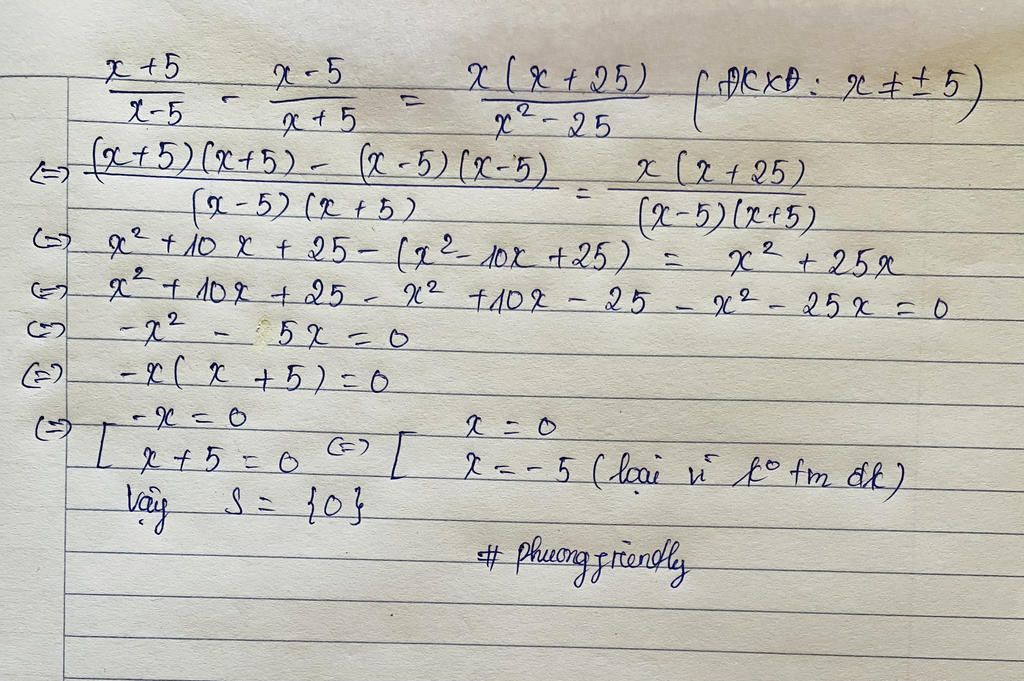 (x+5)/(x-5) - (x-5)/(x+5) = x(x+25)/(x²-25) (ĐKXĐ: x ≠ ±5)
(=) ((x+5)(x+5) - (x-5)(x-5))/((x-5)(x+5)) = x(x+25)/((x-5)(x+5))
(=) x² + 10x + 25 - (x² - 10x + 25) = x² + 25x
(=) x² + 10x + 25 - x² + 10x - 25 - x² - 25x = 0
(=) -x² - 5x = 0
(=) -x(x + 5) = 0
(=) [ -x = 0 ; x + 5 = 0 (=) [ x = 0 ; x = -5 (loại vì k° tm đk)
Vậy S = {0}
# phuongfriendly